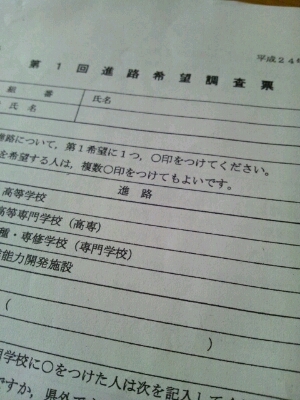 平成24年
第1回進路希望調査票
組 番 氏名
氏名
進路について，第1希望に1つ，○印をつけてください。
を希望する人は，複数○印をつけてもよいです。
進 路
高等学校
高等専門学校（高専）
種・専修学校（専門学校）
能力開発施設
（ ）
学校に○をつけた人は次を記入して
ですか，県外で